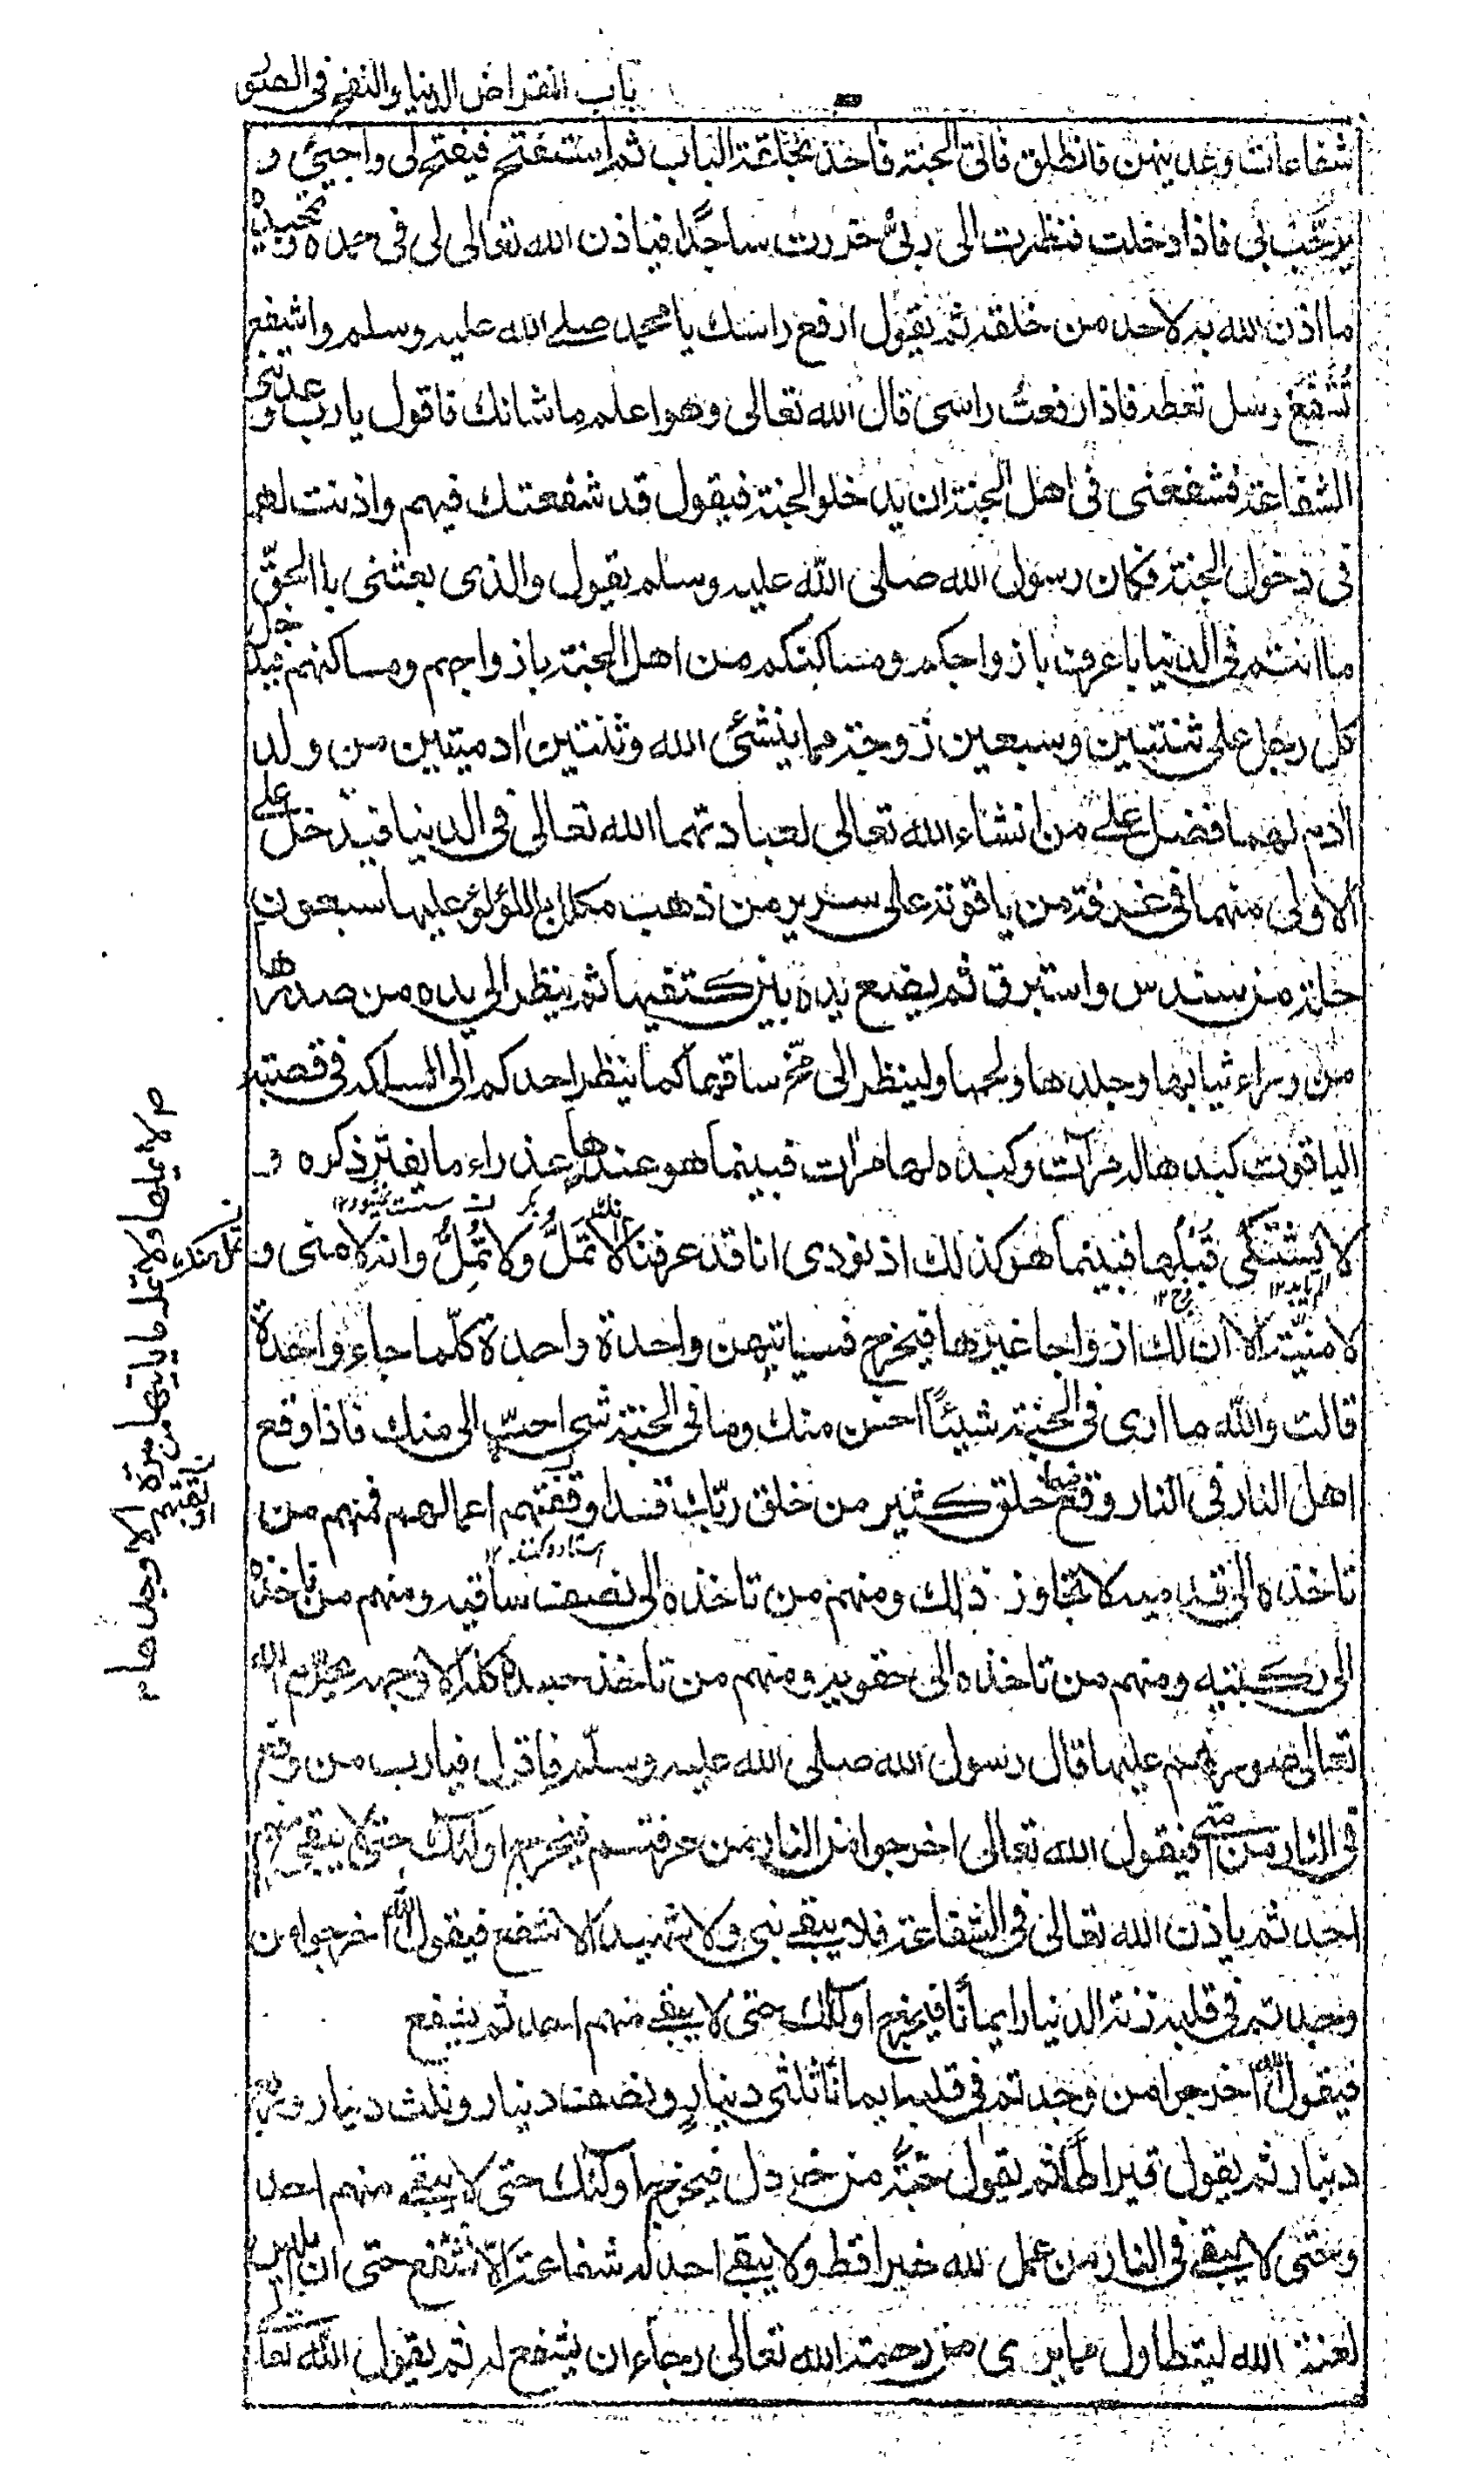 باب انقراض الدنيا والنفخ فى الصور
شفاعات وعدينهن فانطلق فاتى الجنة فاخذ بحلقة الباب ثم استفتح فيفتح لى واحيى و
يرحب بى فاذا دخلت فنظرت الى ربى خررت ساجدا فياذن الله تعالى لى فى حمده وتمجيده
ما اذن الله به لاحد من خلقه ثم يقول ارفع راسك يا محمد صلى الله عليه وسلم واشفع
تشفع وسل تعطه فاذا رفعت راسى قال الله تعالى وهو اعلم ما شانك فاقول يا رب وعدتنى
الشفاعة فشفعنى فى اهل الجنة ان يدخلو الجنة فيقول قد شفعتك فيهم واذنت لهم
فى دخول الجنة فكان رسول الله صلى الله عليه وسلم يقول والذى بعثنى باالحق
ما انتم فى الدنيا باعرف بازواجكم ومساكنكم من اهل الجنة بازواجهم ومساكنهم فيدخل
كل رجل على ثنتين وسبعين زوجة مما ينشئ الله وثنتين ادميتين من ولد
ادم لهما فضل على من انشاء الله تعالى لعبادتهما الله تعالى فى الدنيا فيدخل على
الاولى منهما فى غرفة من ياقوتة على سرير من ذهب مكلل باللؤلؤ عليها سبعون
حلة من سندس واستبرق ثم يضع يده بين كتفيها ثم ينظر الى يده من صدرها
من وراء ثيابها وجلدها ولحمها ولينظر الى مخ ساقها كما ينظر احدكم الى السلك فى قصبة
الياقوت كبدها له مرآت وكبده لها مرات فبينما هو عندها عذراء ما يفتر ذكره و
لا يشتكى قبلها فبينما هو كذلك اذ نودى انا قد عرفنا انك لا تمل ولا تمل وانه لا منى و
لا منية الا ان لك ازواجا غيرها فيخرج فسياتيهن واحدة واحدة كلما جاء واحدة
قالت والله ما ارى فى الجنة شيئا احسن منك وما فى الجنة شى احب الى منك فاذا وقع
اهل النار فى النار وقع فيها خلق كثير من خلق ربك قد اوقفتهم اعمالهم فمنهم من
تاخذه الى قدميه لا تجاوز ذلك ومنهم من تاخذه الى نصف ساقيه ومنهم من تاخذه
الى ركبتيه ومنهم من تاخذه الى حقويه ومنهم من تاخذ جسده كله الا وجهه حرم الله
تعالى صورهم عليها قال رسول الله صلى الله عليه وسلم فاقول فيارب من وقع
فى النار من امتى فيقول الله تعالى اخرجوا من النار من عرفتم فيخرج اولئك حتى لا يبقى منهم
احد ثم ياذن الله تعالى فى الشفاعة فلا يبقى نبى ولا شهيد الا شفع فيقول الله اخرجوا من
وجدتم فى قلبه زنة الدنيار ايمانا فيخرج اولئك حتى لا يبقى منهم احد ثم يشفع
فيقول الله اخرجوا من وجدتم فى قلبه ايمانا ثلثى دينار ونصف دينار وثلث دينار وربع
دينار ثم يقول قيراطا ثم يقول حبة من خردل فيخرج اولئك حتى لا يبقى منهم احد
وحتى لا يبقى فى النار من عمل لله خيرا قط ولا يبقى احد له شفاعة الا شفع حتى ان ابليس
لعنة الله ليتطاول مما يرى من رحمة الله تعالى رجاء ان يشفع له ثم يقول الله تعالى
لا يملها ولا تمله ما ياتيها من مرة الا وجدها